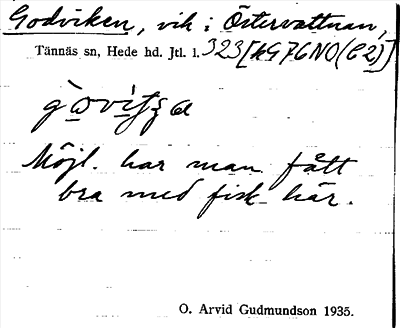 Godviken, vik i Östervattnan,
Tännäs sn, Hede hd. Jtl. l. 323[hG76NO(C2)]
Möjl. har man fått
bra med fisk här.
O. Arvid Gudmundson 1935.